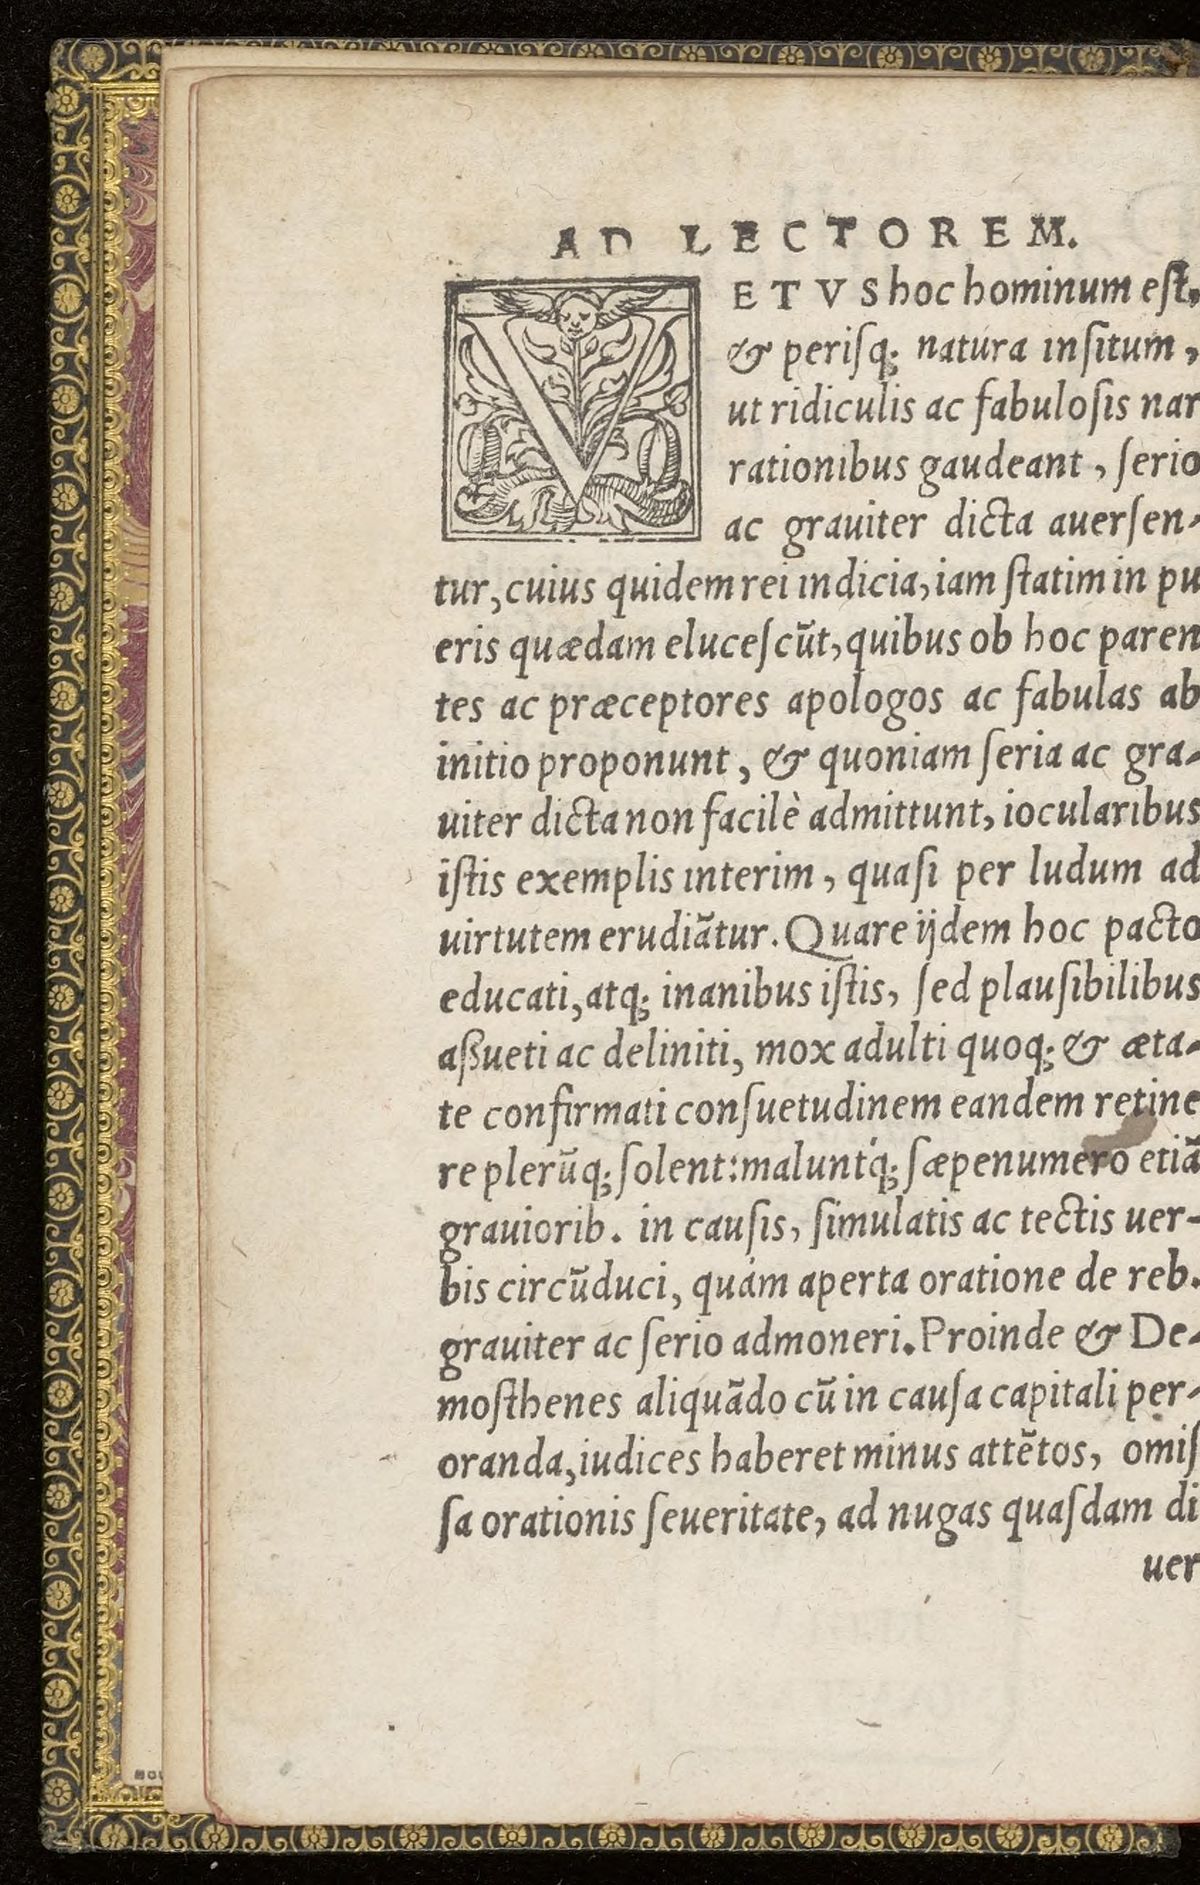 AD LECTOREM.
VETVS hoc hominum eſt,
& periſq; natura inſitum,
ut ridiculis ac fabuloſis nar
rationibus gaudeant, ſerio
ac grauiter dicta auerſen-
tur, cuius quidem rei indicia, iam ſtatim in pu
eris quædam eluceſcūt, quibus ob hoc paren
tes ac præceptores apologos ac fabulas ab
initio proponunt, & quoniam ſeria ac gra-
uiter dicta non facilè admittunt, iocularibus
iſtis exemplis interim, quaſi per ludum ad
uirtutem erudiātur. Quare ijdem hoc pacto
educati, atq; inanibus iſtis, ſed plauſibilibus
aßueti ac deliniti, mox adulti quoq; & æta-
te confirmati conſuetudinem eandem retine
re plerūq; ſolent: maluntq́; ſæpenumero etiā
grauiorib. in cauſis, ſimulatis ac tectis uer-
bis circūduci, quàm aperta oratione de reb.
grauiter ac ſerio admoneri. Proinde & De-
moſthenes aliquādo cū in cauſa capitali per-
oranda, iudices haberet minus attētos, omiſ
ſa orationis ſeueritate, ad nugas quaſdam di
uer